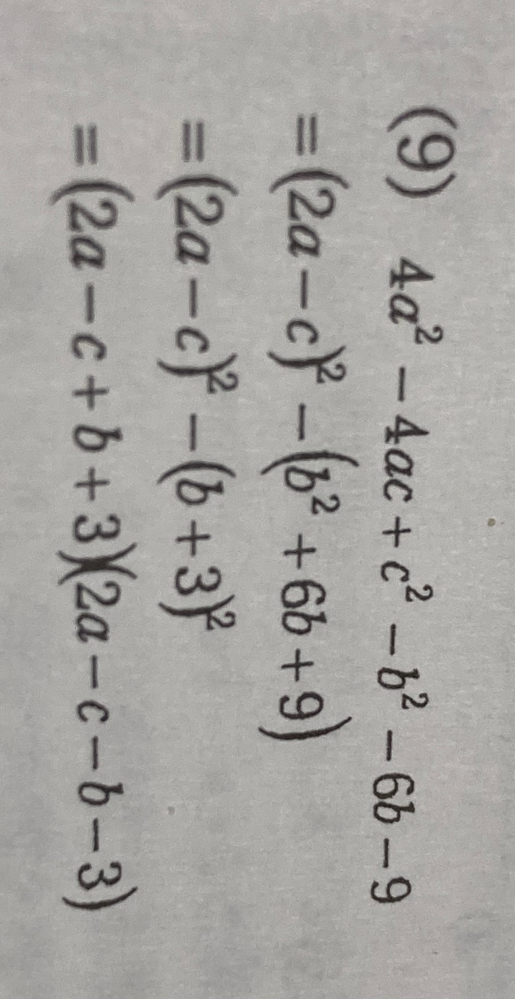 (9) 4a² − 4ac + c² − b² − 6b − 9
= (2a − c)² − (b² + 6b + 9)
= (2a − c)² − (b + 3)²
= (2a − c + b + 3)(2a − c − b − 3)